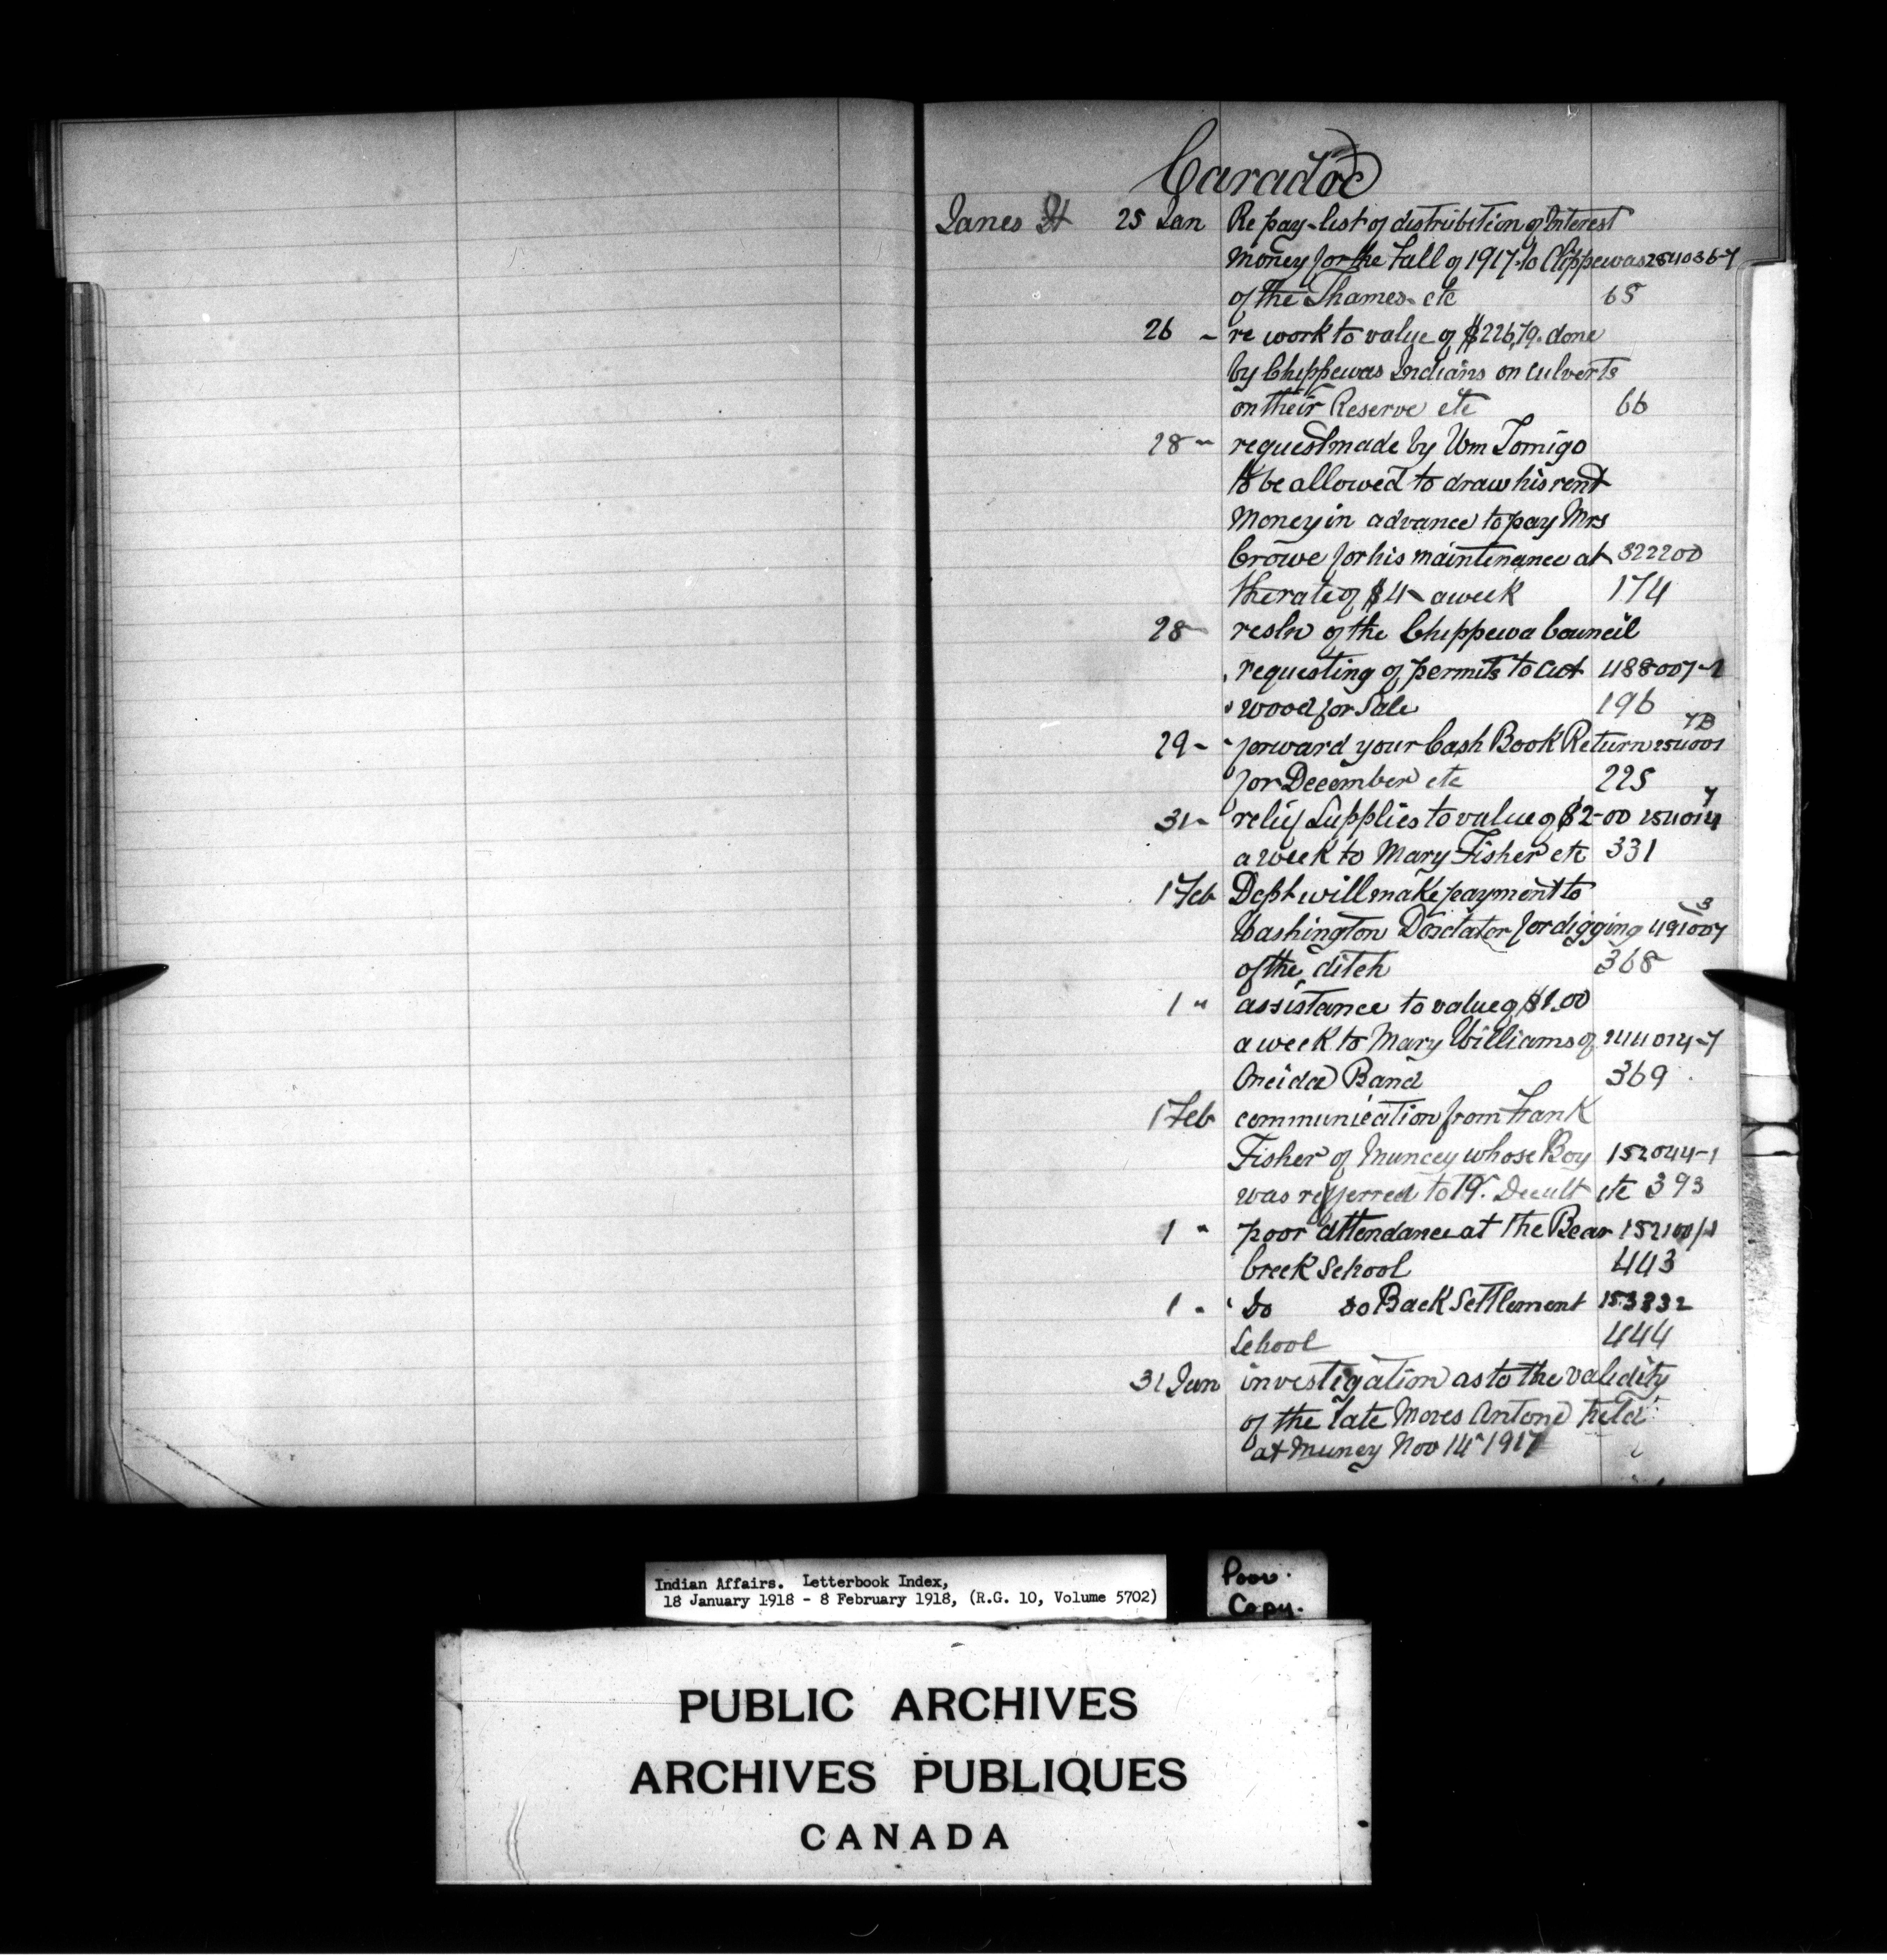 Caradoc
Janes H 25 Jan Re pay-list of distribution of Interest
Money for the Fall of 1917 to Chippewas 254036-7
of the Thames etc 65
26 " re work to value of $226,79. done
by Chippewas Indians on culverts
on their Reserve etc 66
28 " request made by Wm Tomigo
to be allowed to draw his rent
Money in advance to pay Mrs
Crowe for his maintenance at 322200
the rate of $4 - a week 174
28 resln of the Chippewa Council
requesting of permits to cut 488007-1
wood for Sale 196
29 - forward your Cash Book Return 254001 7B
for December etc 225
31 - relief Supplies to value of $2-00 254014 7
a week to Mary Fisher etc 331
1 Feb Dept will make payment to
Washington Doxtator for digging 491007 3
of the ditch 368
1 " assistance to value of $1.00
a week to Mary Williams of 244014-7
Oneida Band 369
1 Feb communication from Frank
Fisher of Muncey whose Boy 152044-1
was referred to etc 393
1 " poor attendance at the Bear 152100/1
Creek School 443
1 " Do Do Back Settlement 153832
School 444
31 Jan investigation as to the validity
of the late Moses Antone held
at Muncy Nov 14" 1917
Indian Affairs. Letterbook Index,
18 January 1918 - 8 February 1918, (R.G. 10, Volume 5702)
Poor.
Copy.
PUBLIC ARCHIVES
ARCHIVES PUBLIQUES
CANADA